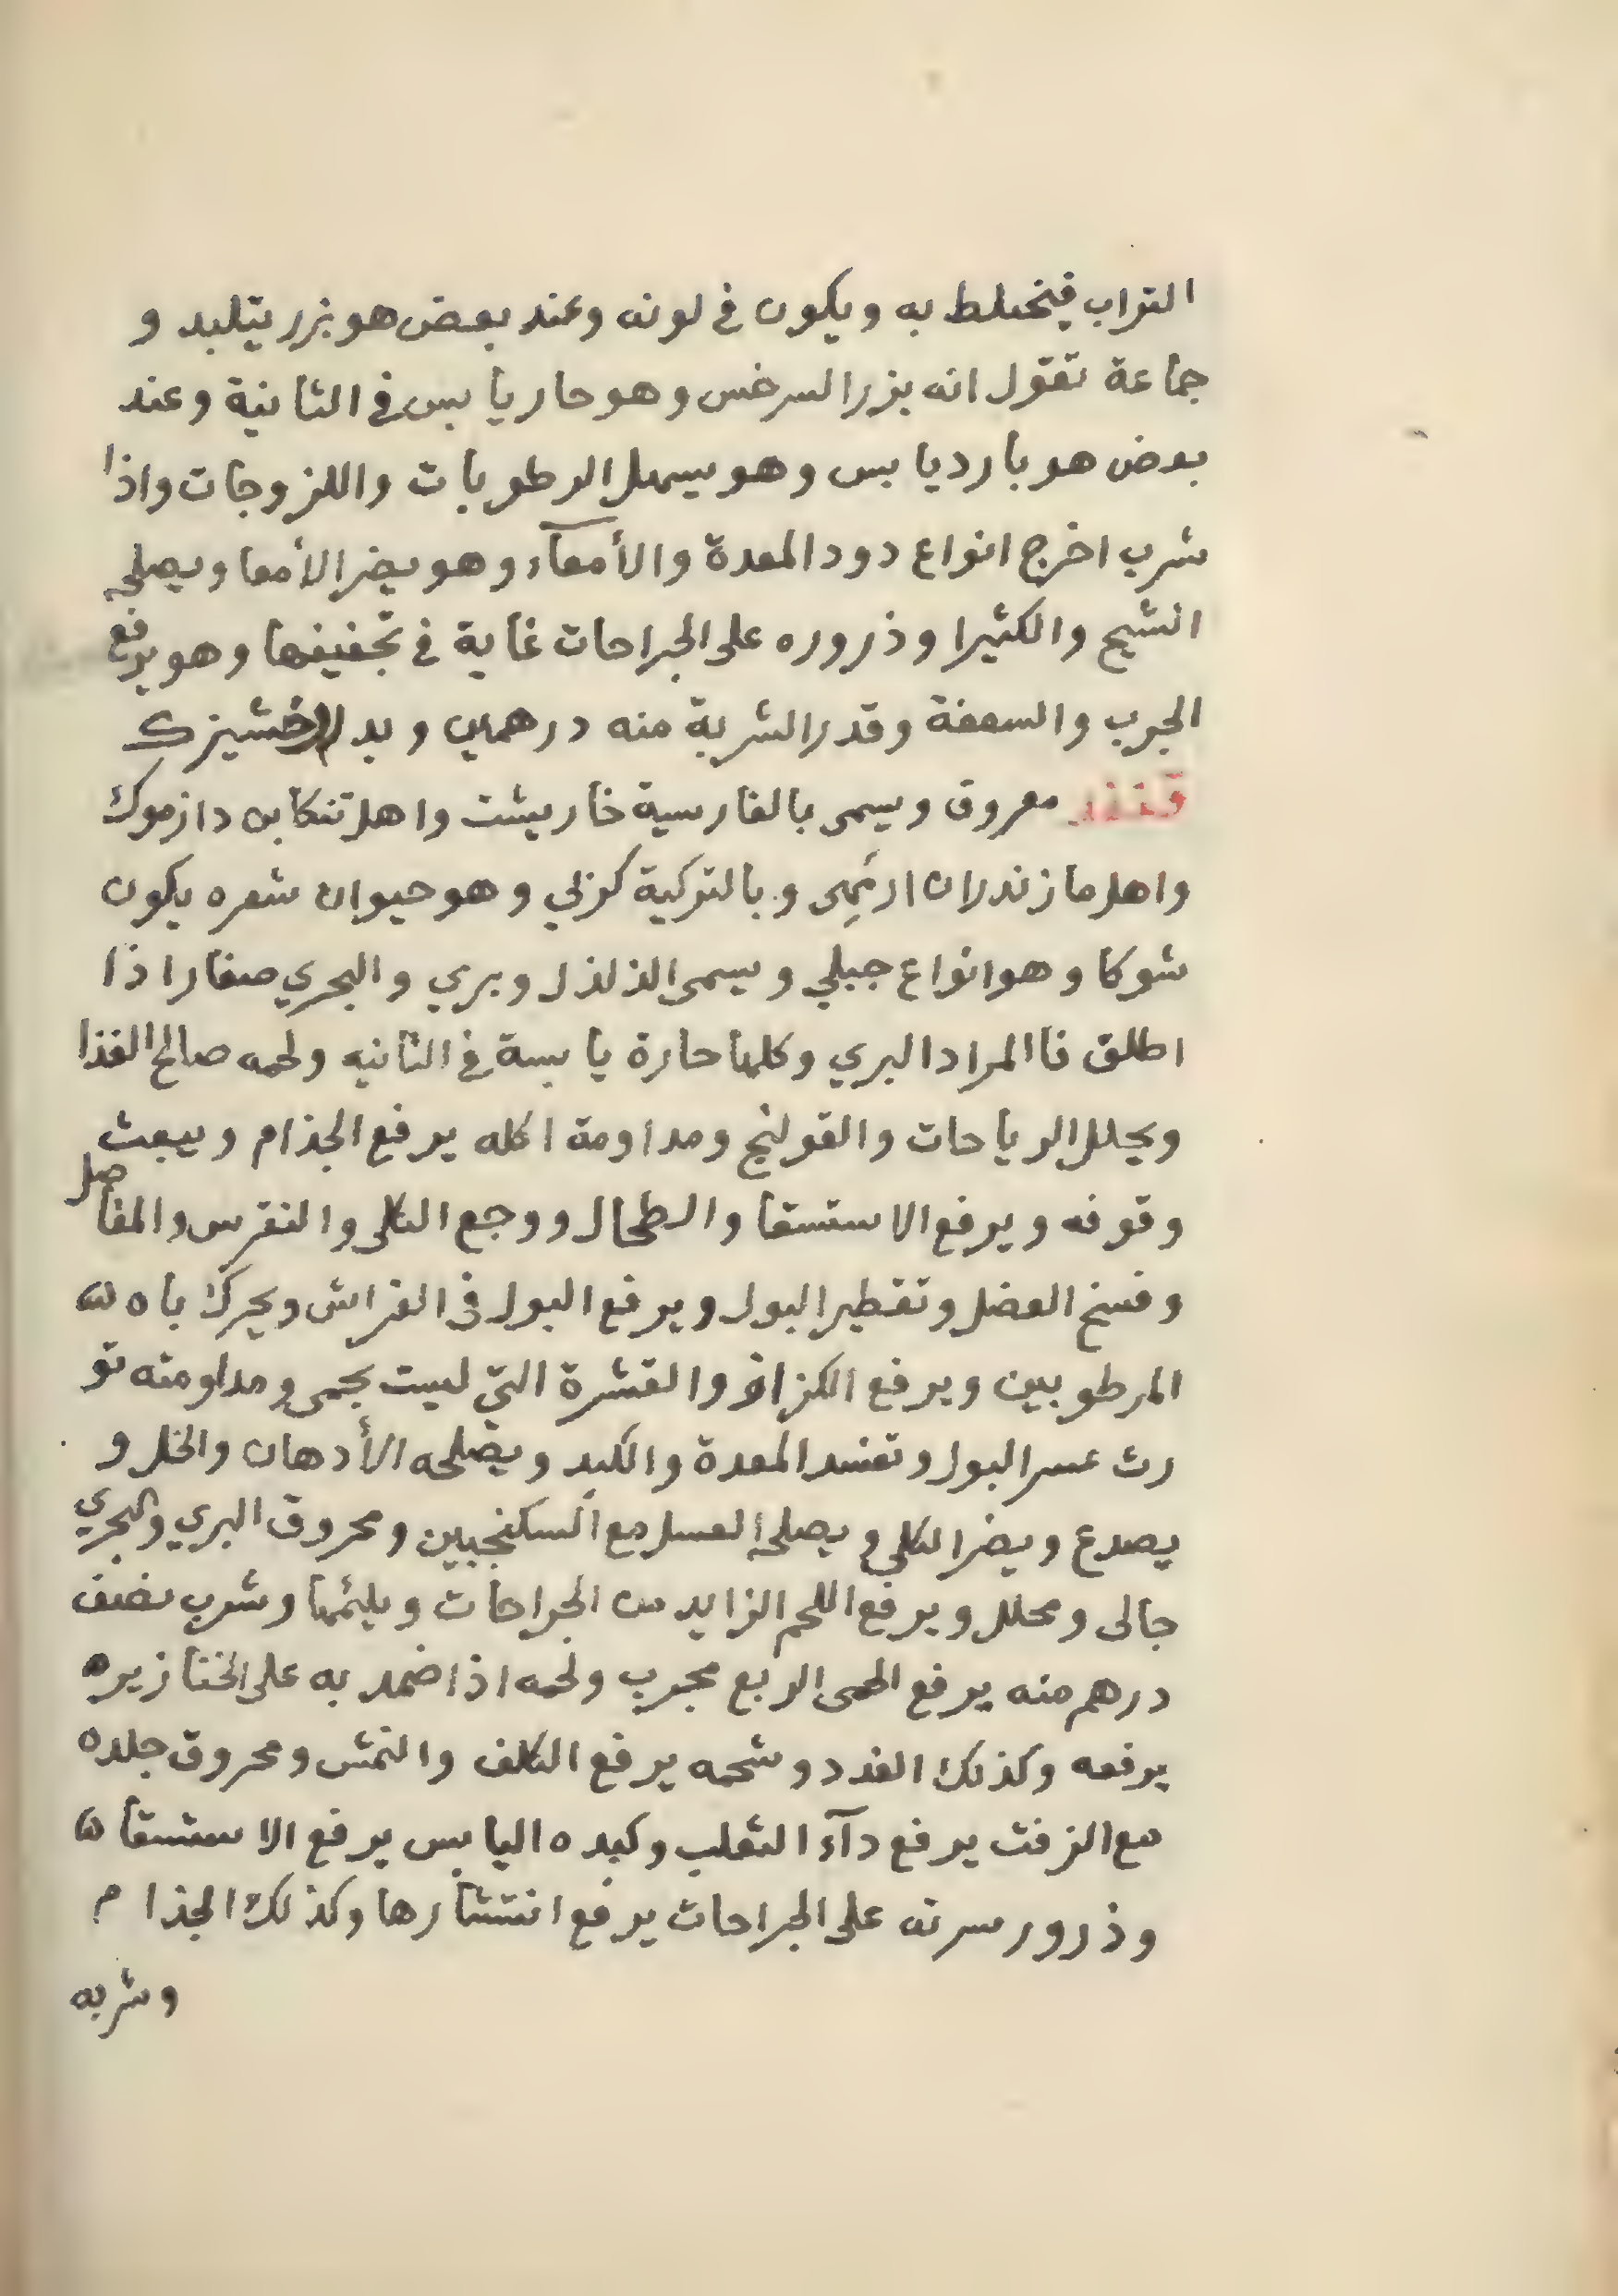 التراب فيختلط به ويكون في لونه وعند بعض هو بزر يتلبد و
جماعة تقول انه بزر السرخس وهو حار يابس في الثانية وعند
بعض هو بارد يابس وهو يسهل الرطوبات واللزوجات واذا
شرب اخرج انواع دود المعدة والأمعآء وهو يضر الأمعا ويصلحه
الشيح والكثيرا وذروره على الجراحات غاية في تجفيفها وهو يرفع
الجرب والسعفة وقدر الشربة منه درهمين وبدله خشيزك
قنفذ معروف ويسمى بالفارسية خارپشت واهل تنكابن دازموك
واهل مازندران ارمجى وبالتركية كزلي وهو حيوان شعره يكون
شوكا وهو انواع جبلي ويسمى الذلذل وبري والبحري صغار اذا
اطلق فاالمراد البري وكلها حارة يابسة في الثانيه ولحمه صالح الغذا
ويحلل الرياحات والقولنج ومداومة اكله يرفع الجذام ويبعث
وقوفه ويرفع الاستسقا والطحال ووجع الكلى والنقرس والمفاصل
وفسخ العضل وتقطير البول ويرفع البول في الفراش ويحرك باه
المرطوبين ويرفع الكزاز والقشرة التي ليست بحمى ومداومته تو
رث عسر البول وتفسد المعدة والكبد ويصلحه الأدهان والخل و
يصدع ويضر الكلى ويصلحه العسل مع السكنجبين ومحروق البري والبحري
جالى ومحلل ويرفع اللحم الزايد من الجراحات ويلئمها وشرب نصف
درهم منه يرفع الحمى الربع مجرب ولحمه اذا ضمد به على الخنازير
يرفعه وكذلك الغدد وشحمه يرفع الكلف والنمش ومحروق جلده
مع الزفت يرفع دآء الثعلب وكبده اليابس يرفع الاستسقا
وذرور سرته على الجراحات يرفع انتشارها وكذلك الجذام
وشربه